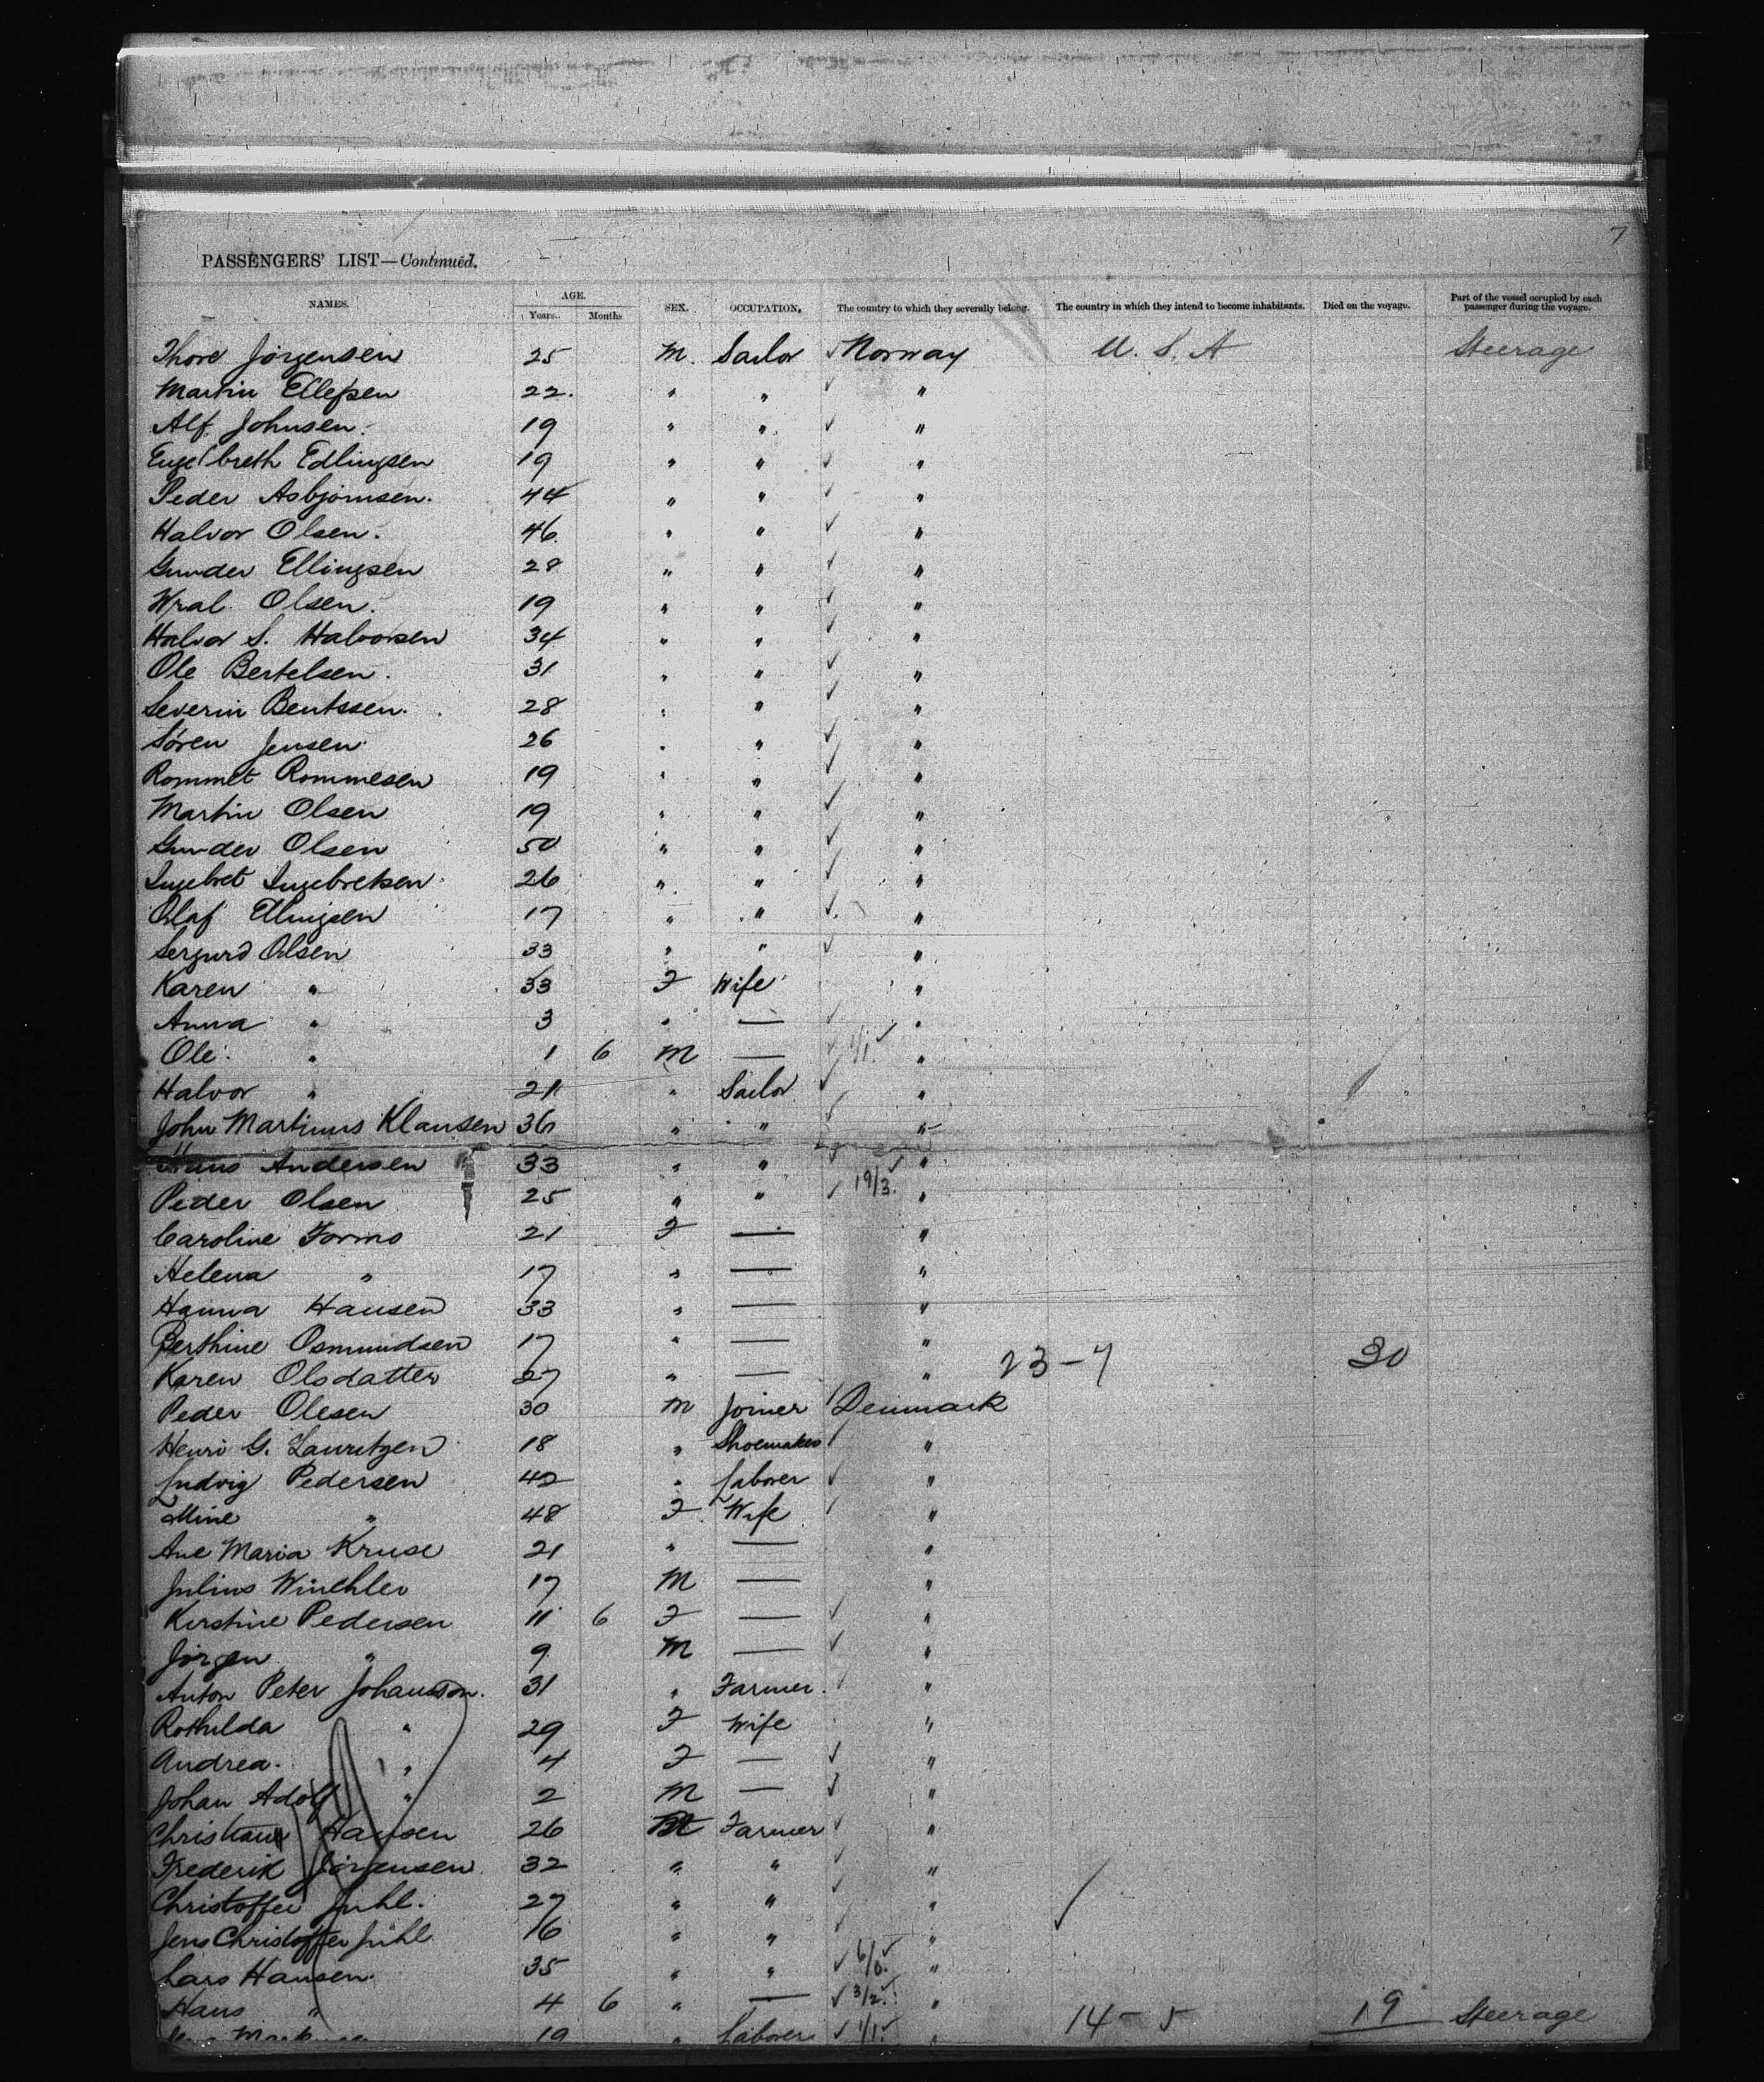 7
PASSENGERS' LIST—Continued.
NAMES. AGE. Years. Months SEX. OCCUPATION. The country to which they severally belong. The country in which they intend to become inhabitants. Died on the voyage. Part of the vessel occupied by each passenger during the voyage.
Thore Jørgensen 25 M. Sailor ✓ Norway U. S. A Steerage
Martin Ellefsen 22. " " ✓ "
Alf. Johnsen. 19 " " ✓ "
Engelbreth Edlingsen 19 " " ✓ "
Peder Asbjørnsen. 44 " " ✓ "
Halvor Olsen. 46. " " ✓ "
Gunder Ellingsen 28 " " ✓ "
Wral. Olsen. 19 " " ✓ "
Halvor S. Halvorsen 34 " " ✓ "
Ole Bertelsen. 31 " " ✓ "
Severin Bentssen. 28 " " ✓ "
Søren Jensen 26 " " ✓ "
Rommet Rommesen 19 " " ✓ "
Martin Olsen 19 " " ✓ "
Gunder Olsen 50 " " ✓ "
Ingebret Ingebretsen 26 " " ✓ "
Olaf Ellingsen 17 " " ✓ "
Sergurd Olsen 33 " " ✓ "
Karen " 33 F Wife "
Anna " 3 " — ✓ "
Ole. " 1 6 M — ✓ 1/1. ✓ "
Halvor " 21 " Sailor ✓ "
John Martinus Klausen 36 " " ✓ "
Hans Andersen 33 " " ✓ "
Peder Olsen 25 " " ✓ 19/3. ✓ "
Caroline Formo 21 F — "
Helena " 17 " — "
Hanna Hansen 33 " — "
Berthine Osmundsen 17 " — "
Karen Olsdatter 27 " — " 23-7 30
Peder Olesen 30 M Joiner ✓ Denmark
Henri G. Lauritzen 18 " Shoemaker ✓ "
Ludvig Pedersen 42 " Laborer ✓ "
Mine " 48 F. Wife ✓ "
Ane Maria Kruse 21 " — "
Julius Winchler 17 M — "
Kirstine Pedersen 11 6 F — ✓ "
Jørgen " 9 M — ✓ "
Anton Peter Johansson. 31 " Farmer. ✓ "
Rothilda " 29 F Wife "
Andrea. " 4 F — ✓ "
Johan Adolf " 2 M — ✓ "
Christian Hansen 26 M Farmer ✓ "
Frederik Jørgensen 32 " " ✓ "
Christoffer Juhl. 27 " " ✓ " ✓
Jens Christoffer Juhl 16 " " ✓ "
Lars Hansen. 35 " " ✓ 6/0. ✓ "
Hans " 4 6 " — ✓ 3/2. ✓ " 14-5 19 Steerage
19 " Laborer ✓ 1/1. ✓ "